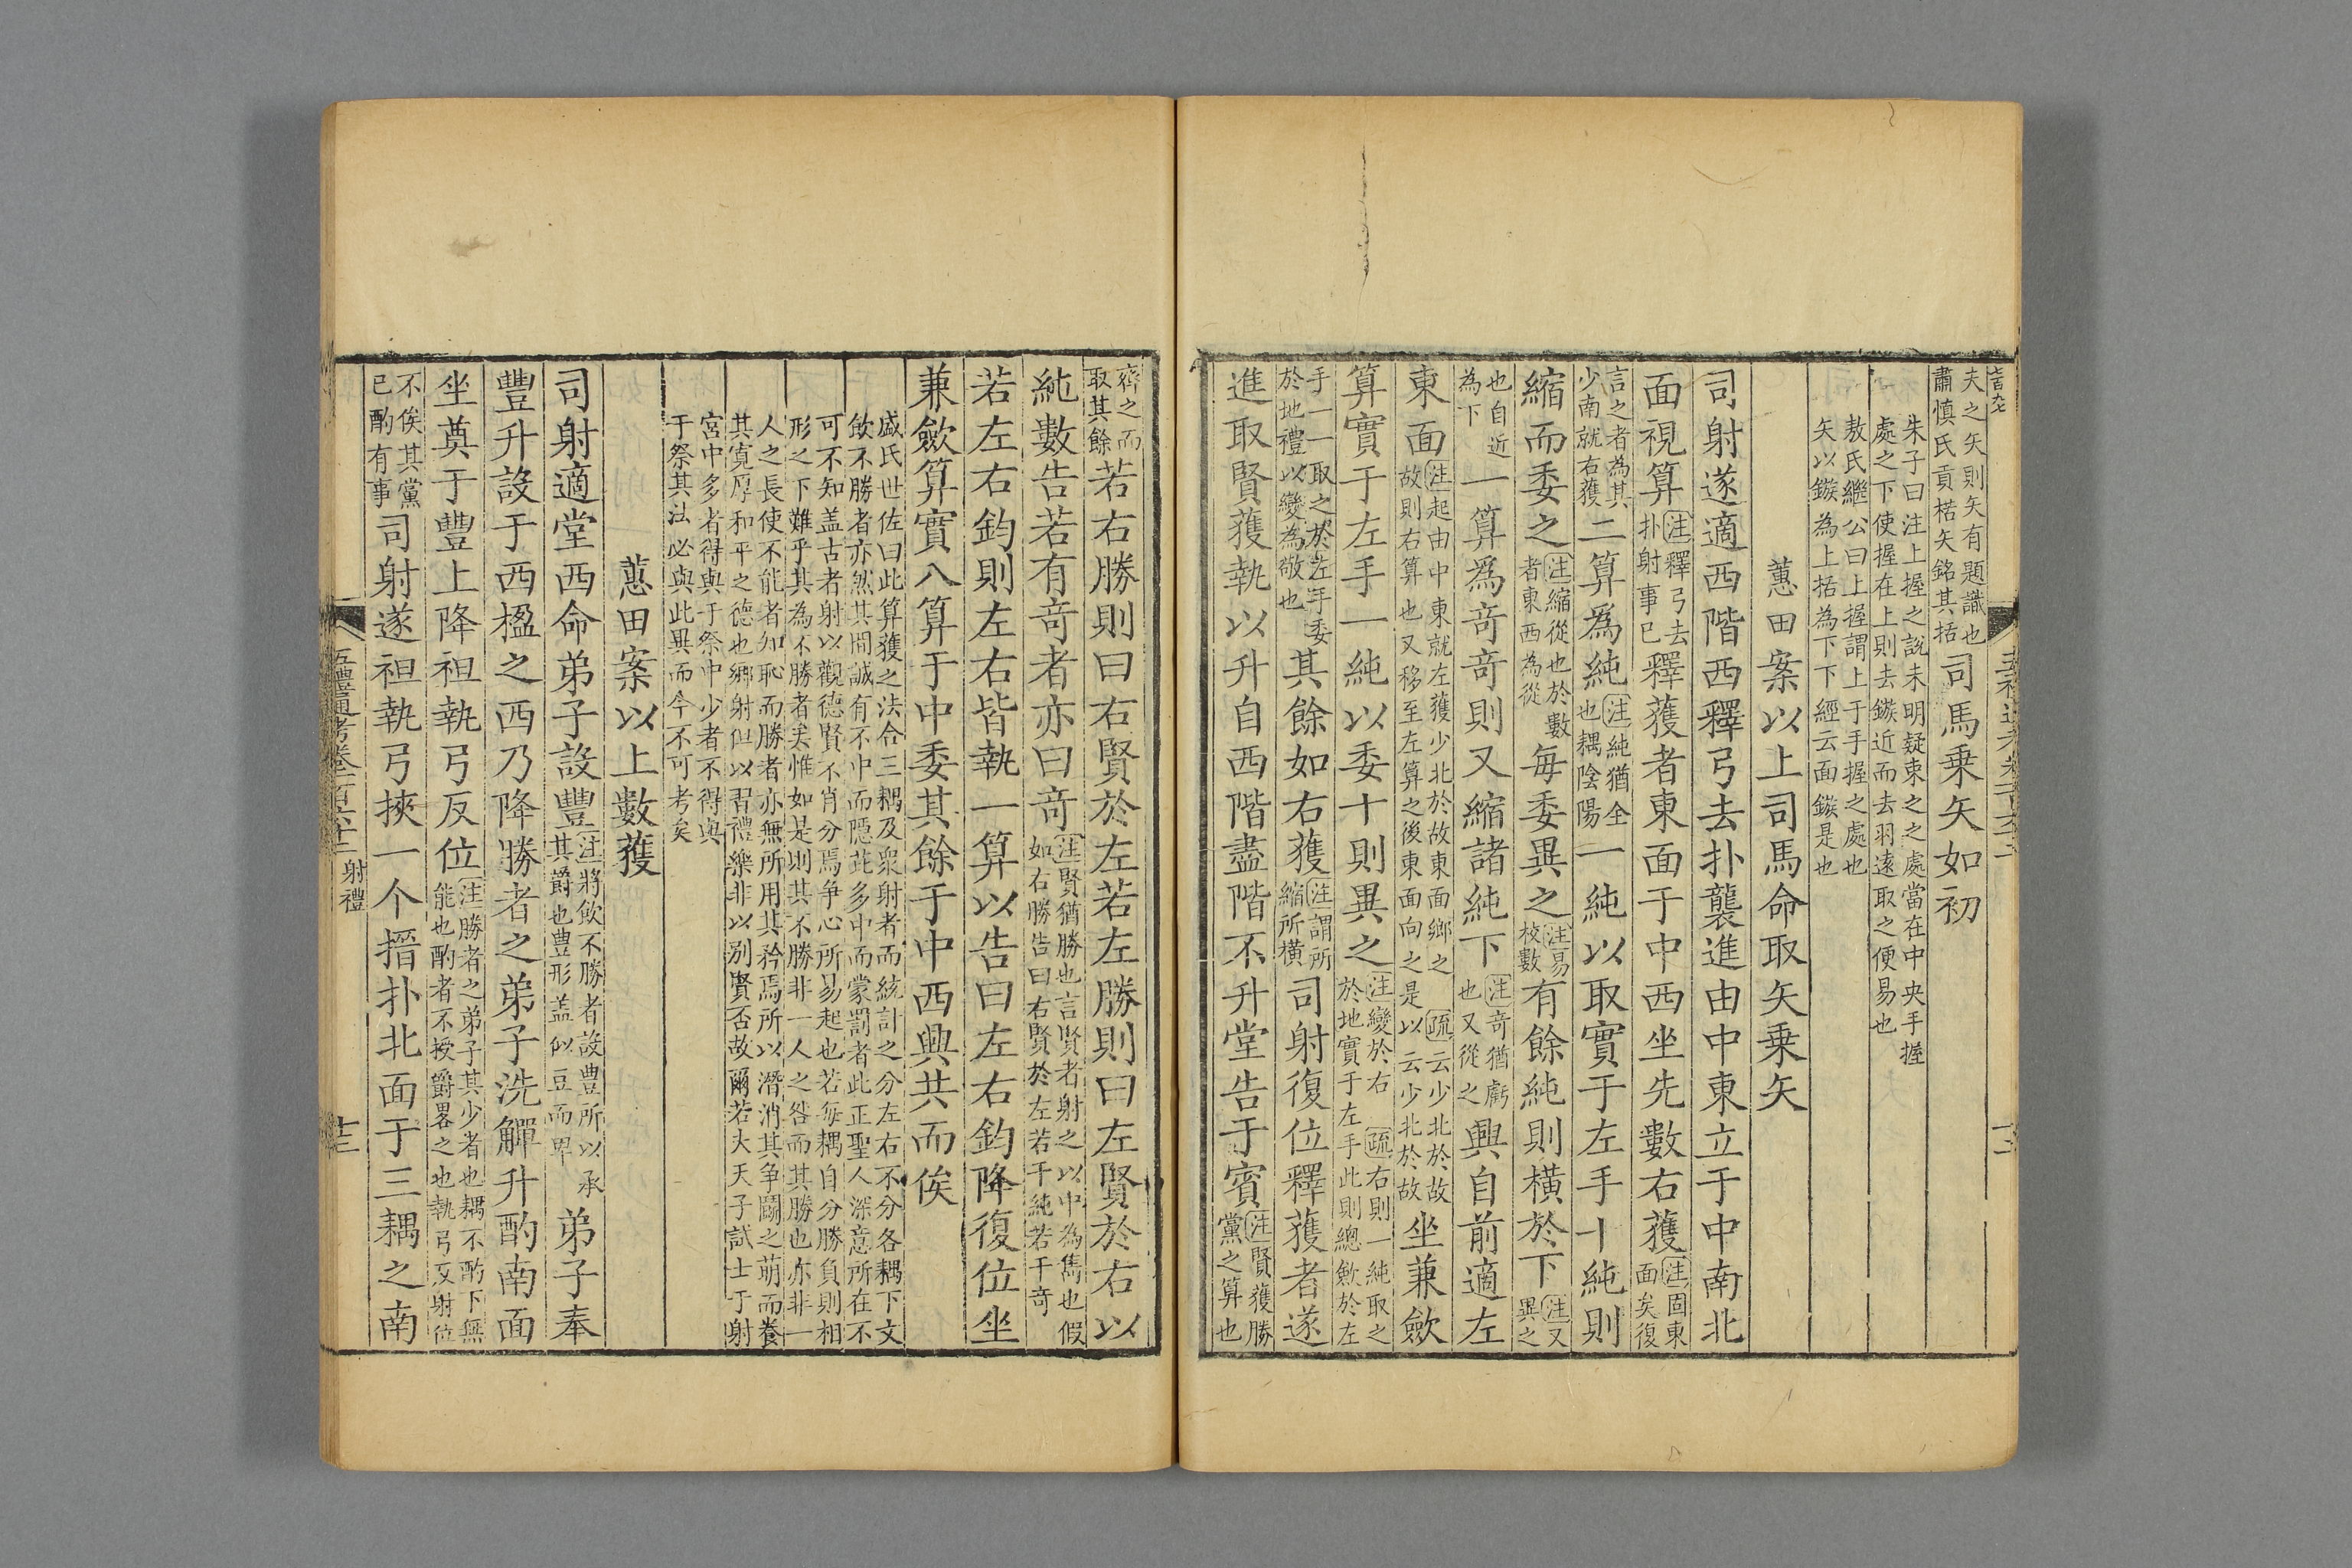 夫之矢則矢有題識也
肅慎氏貢楛矢銘其括
司馬乗矢如初
朱子曰注上握之説未明疑束之之處當在中央手握
處之下使握在上則去鏃近而去羽遠取之便易也
敖氏繼公曰上握謂上于手握之處也
矢以鏃為上括為下下經云面鏃是也
蕙田案以上司馬命取矢乗矢
司射遂適西階西釋弓去扑襲進由中東立于中南北
面視算
注釋弓去
扑射事已
釋獲者東面于中西坐先數右獲
注固東
面矣復
言之者為其
少南就右獲
二算爲純
注純猶全
也耦陰陽
一純以取實于左手十純則
縮而委之
注縮從也於數
者東西為從
毎委異之
注易
校數
有餘純則橫於下
注又
異之
也自近
為下
一算爲竒竒則又縮諸純下
注竒猶虧
也又從之
興自前適左
東面
注起由中東就左獲少北於故東面鄉之 疏云少北於故
故則右算也又移至左算之後東面向之是以云少北於故
坐兼斂
算實于左手一純以委十則異之
注變於右 疏右則一純取之
於地實于左手此則總斂於左
手一一取之於左手委
於地禮以變為敬也
其餘如右獲
注謂所
縮所橫
司射復位釋獲者遂
進取賢獲執以升自西階盡階不升堂告于賓
注賢獲勝
黨之算也
齊之而
取其餘
若右勝則曰右賢於左若左勝則曰左賢於右以
純數告若有竒者亦曰竒
注賢猶勝也言賢者射之以中為雋也假
如右勝告曰右賢於左若干純若干竒
若左右鈞則左右皆執一算以告曰左右鈞降復位坐
兼斂算實八算于中委其餘于中西興共而俟
盛氏世佐曰此算獲之法合三耦及衆射者而統計之分左右不分各耦下文
飲不勝者亦然其間誠有不中而隱茈多中而蒙罰者此正聖人深意所在不
可不知盖古者射以觀德賢不肖分焉爭心所易起也若毎耦自分勝負則相
形之下難乎其為不勝者矣惟如是則其不勝非一人之咎而其勝也亦非一
人之長使不能者知恥而勝者亦無所用其矜焉所以潛消其爭鬬之萌而養
其寛厚和平之德也鄉射但以習禮樂非以別賢否故爾若大天子試士于射
宮中多者得與于祭中少者不得與
于祭其法必與此異而今不可考矣
蕙田案以上數獲
司射適堂西命弟子設豐
注將飲不勝者設豊所以承
其爵也豊形盖似豆而卑
弟子奉
豐升設于西楹之西乃降勝者之弟子洗觶升酌南面
坐奠于豐上降袒執弓反位
注勝者之弟子其少者也耦不酌下無
能也酌者不授爵畧之也執弓反射位
不俟其黨
已酌有事
司射遂袒執弓挾一个搢扑北面于三耦之南
五禮通考卷一百六十二 射禮
十三